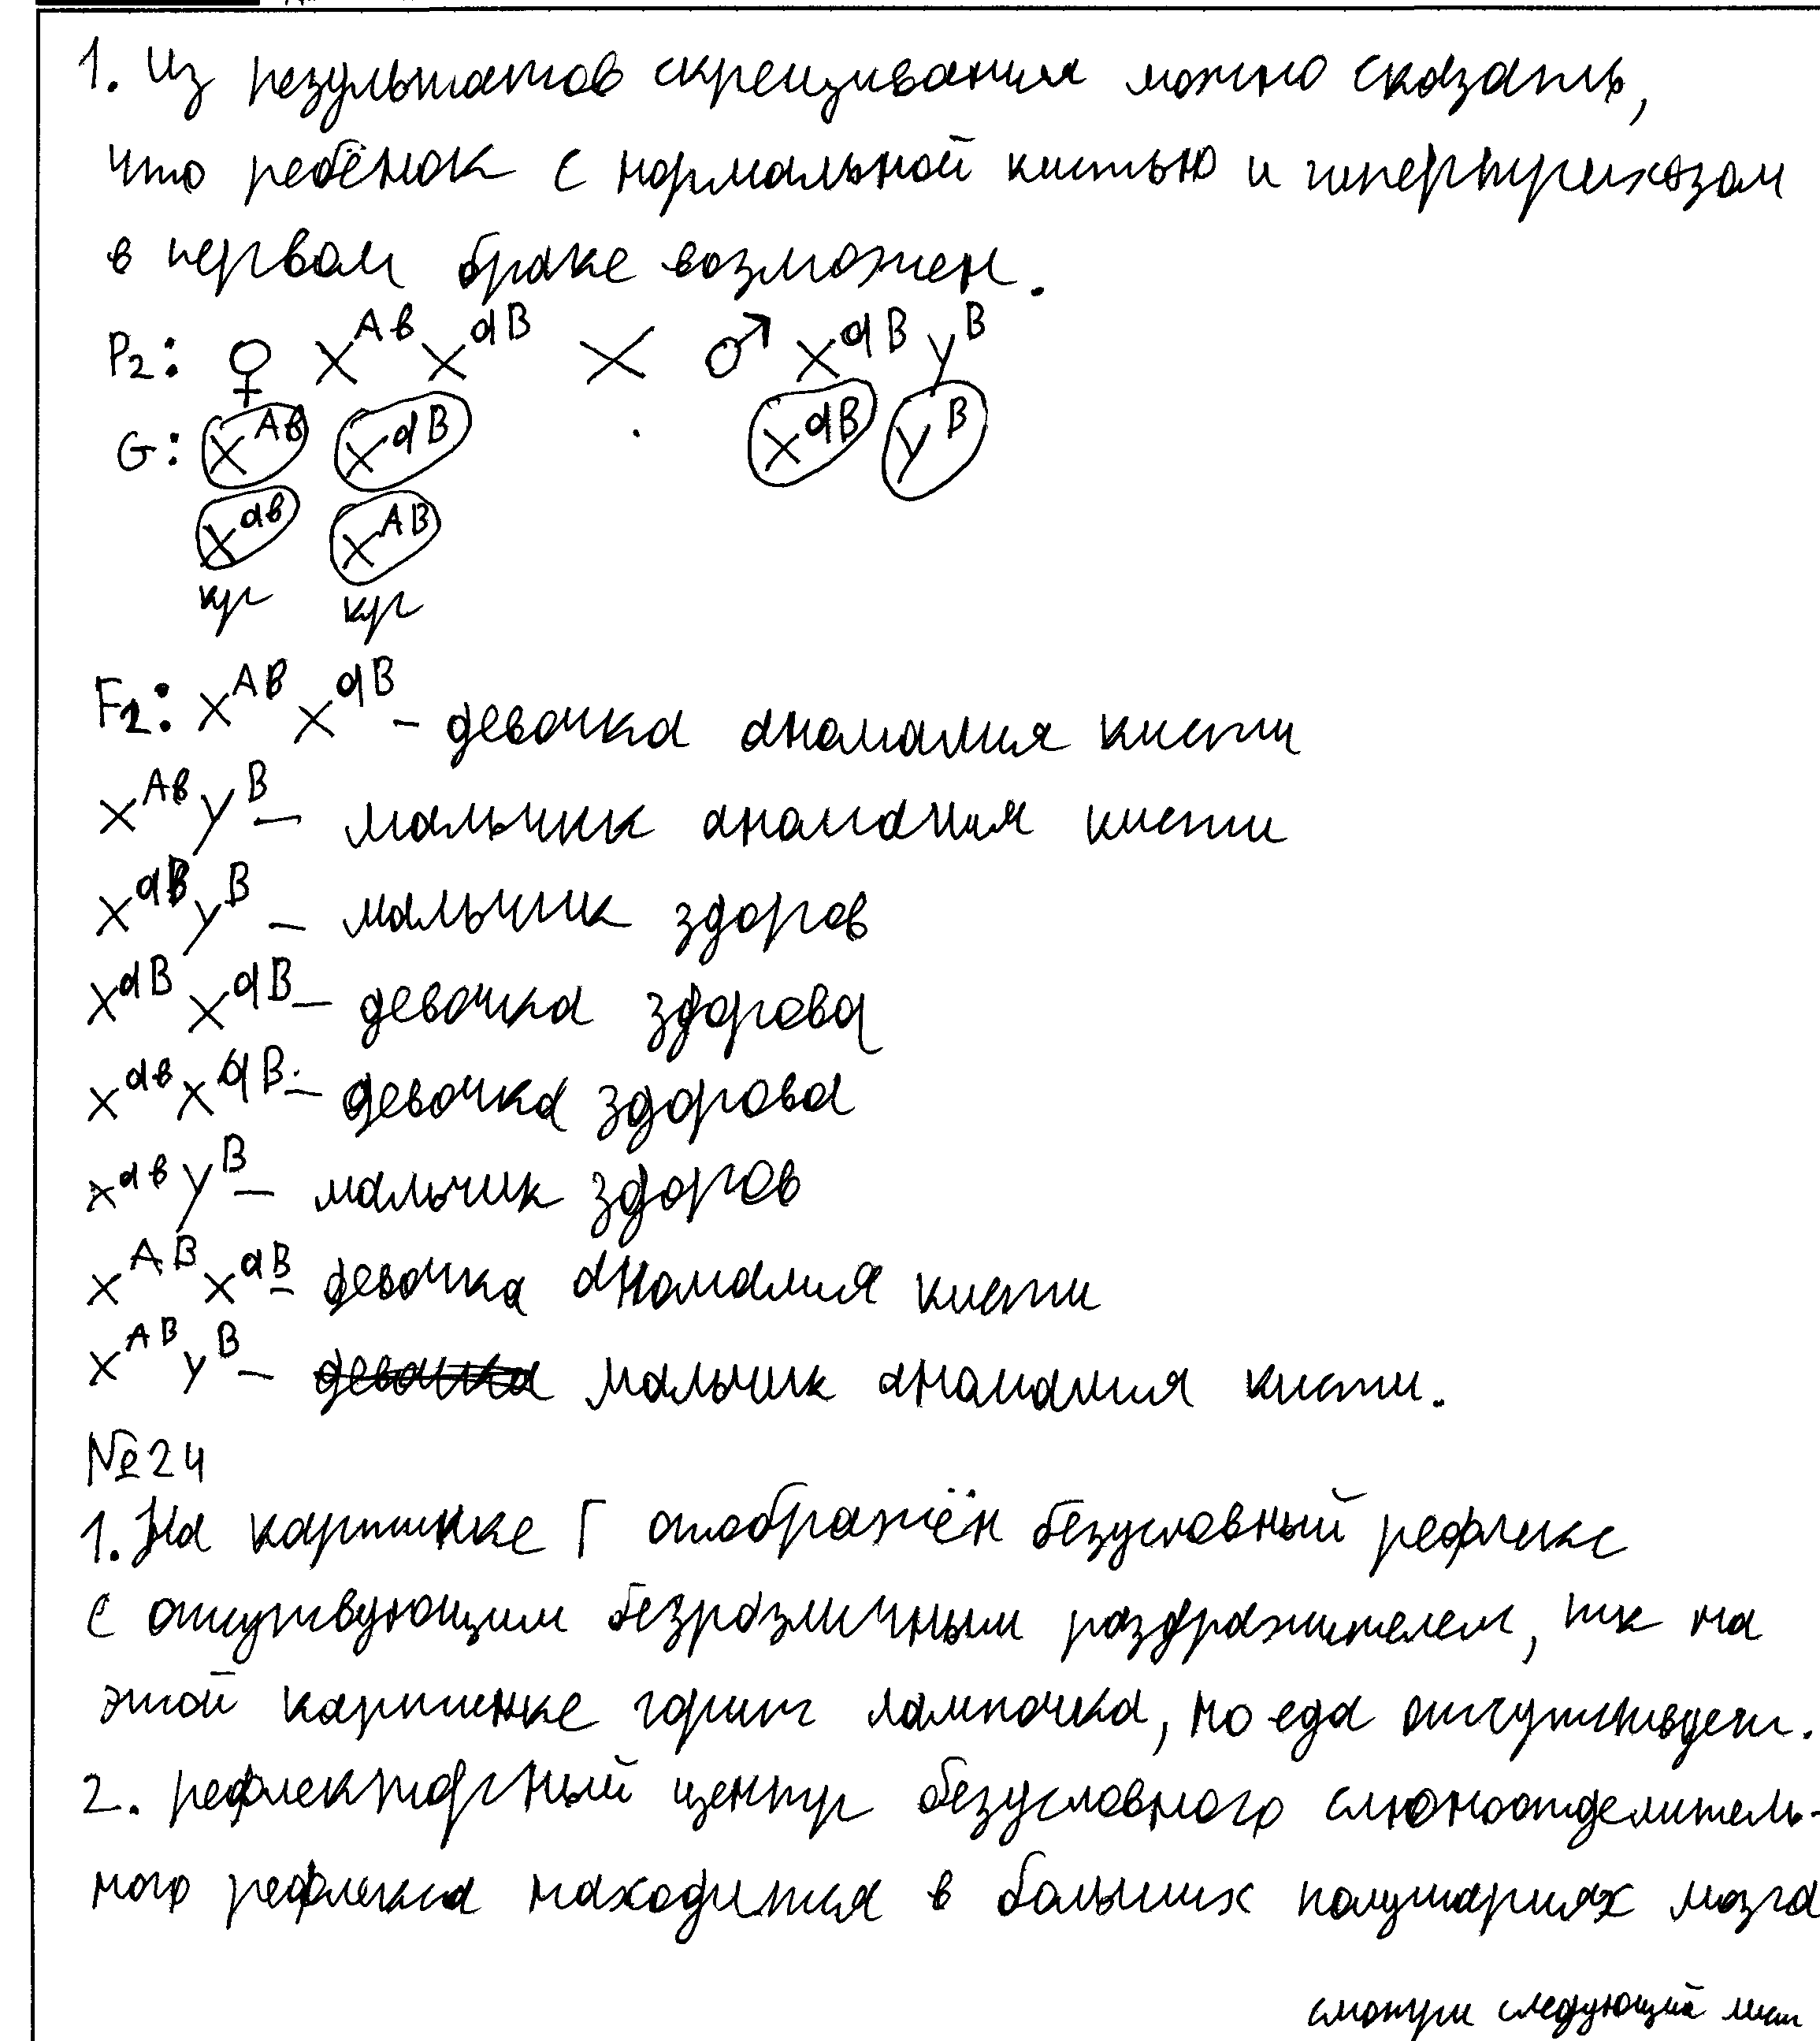 1. Из результатов скрещивания можно сказать,
что ребёнок с нормальной кистью и гипертрихозом
в первом браке возможен.
P₂: ♀ X^Aв X^aB × ♂ X^aB y^B
G: X^Aв X^aB X^aB y^B
X^aв X^AB
кр кр
F₂: X^Aв X^aB – девочка аномалия кисти
X^Aв y^B – мальчик аномалия кисти
X^aB y^B – мальчик здоров
X^aB X^aB – девочка здорова
X^aв X^aB – девочка здорова
X^aв y^B – мальчик здоров
X^AB X^aB – девочка аномалия кисти
X^AB y^B – девочка мальчик аномалия кисти.
№24
1. На картинке Г отображён безусловный рефлекс
с отсутвующим безразличным раздражителем, тк на
этой картинке горит лампочка, но еда отсутствует.
2. рефлекторный центр безусловного слюноотделитель-
ного рефлекса находится в больших полушариях мозга
смотри следующий лист